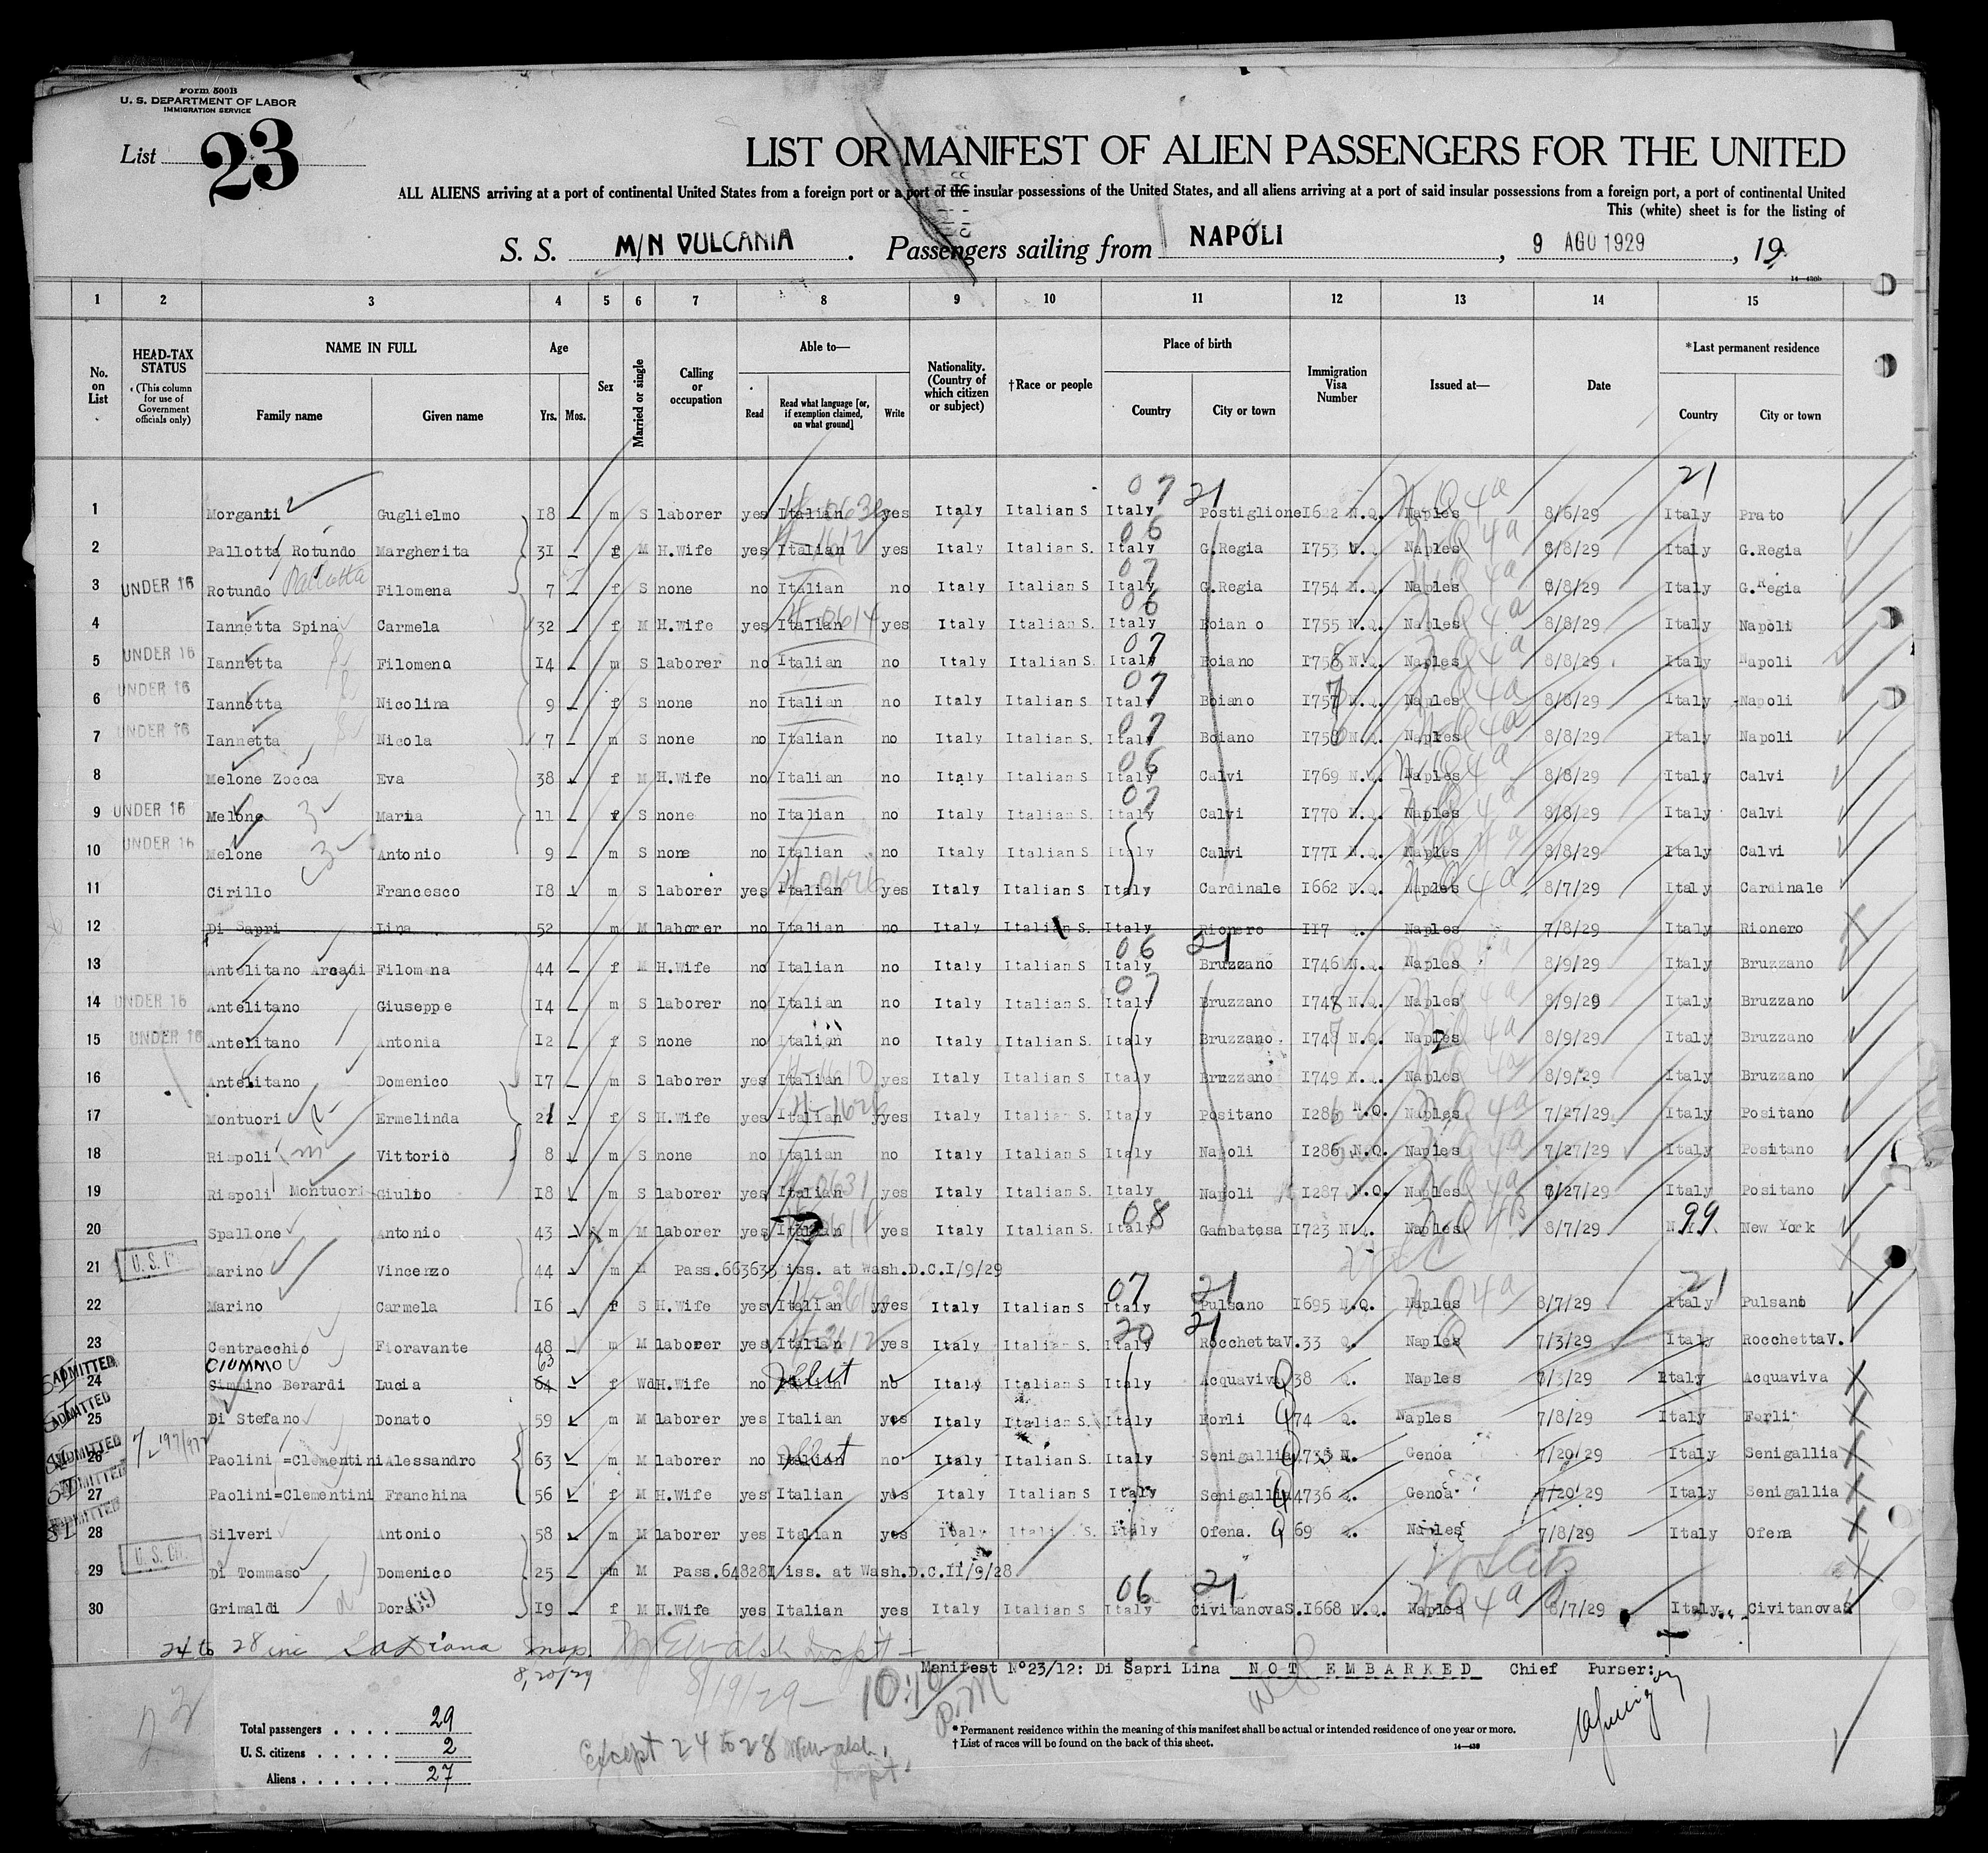 Form 500B
U. S. DEPARTMENT OF LABOR
IMMIGRATION SERVICE
List 23
LIST OR MANIFEST OF ALIEN PASSENGERS FOR THE UNITED
ALL ALIENS arriving at a port of continental United States from a foreign port or a port of the insular possessions of the United States, and all aliens arriving at a port of said insular possessions from a foreign port, a port of continental United
This (white) sheet is for the listing of
S. S. M/N VULCANIA. Passengers sailing from NAPOLI, 9 AGO 1929, 19
14—430b
1 2 3 4 5 6 7 8 9 10 11 12 13 14 15
No. on List
HEAD-TAX STATUS (This column for use of Government officials only)
NAME IN FULL
Family name Given name
Age
Yrs. Mos.
Sex
Married or single
Calling or occupation
Able to—
Read Read what language [or, if exemption claimed, on what ground] Write
Nationality. (Country of which citizen or subject)
†Race or people
Place of birth
Country City or town
Immigration Visa Number
Issued at—
Date
*Last permanent residence
Country City or town
07 21 21
1 Morganti Guglielmo 18 m S laborer yes Italian yes Italy Italian S Italy Postiglione 1622 N.Q. Naples 8/6/29 Italy Prato
06
2 Pallotta Rotundo Margherita 31 f M H.Wife yes Italian yes Italy Italian S. Italy G.Regia 1753 N.Q. Naples 8/8/29 Italy G.Regia
07
3 UNDER 16 Rotundo Pallotta Filomena 7 f S none no Italian no Italy Italian S Italy G.Regia 1754 N.Q. Naples 8/8/29 Italy G.Regia
06
4 Iannetta Spina Carmela 32 f M H.Wife yes Italian yes Italy Italian S. Italy Boiano 1755 N.Q. Naples 8/8/29 Italy Napoli
07
5 UNDER 16 Iannetta Filomeno 14 m S laborer no Italian no Italy Italian S. Italy Boiano 1758 N.Q. Naples 8/8/29 Italy Napoli
07
6 UNDER 16 Iannetta Nicolina 9 f S none no Italian no Italy Italian S Italy Boiano 1757 N.Q. Naples 8/8/29 Italy Napoli
07
7 UNDER 16 Iannetta Nicola 7 m S none no Italian no Italy Italian S. Italy Boiano 1756 N.Q. Naples 8/8/29 Italy Napoli
06
8 Melone Zocca Eva 38 f M H.Wife no Italian no Italy Italian S Italy Calvi 1769 N.Q. Naples 8/8/29 Italy Calvi
07
9 UNDER 16 Melone Maria 11 f S none no Italian no Italy Italian S. Italy Calvi 1770 N.Q. Naples 8/8/29 Italy Calvi
10 UNDER 16 Melone Antonio 9 m S none no Italian no Italy Italian S Italy Calvi 1771 N.Q. Naples 8/8/29 Italy Calvi
11 Cirillo Francesco 18 m S laborer yes Italian yes Italy Italian S Italy Cardinale 1662 N.Q. Naples 8/7/29 Italy Cardinale
12 Di Sapri Lina 52 m M laborer no Italian no Italy Italian S. Italy Rionero 117 Q. Naples 7/8/29 Italy Rionero
06 21
13 Antelitano Arcadi Filomena 44 f M H.Wife no Italian no Italy Italian S Italy Bruzzano 1746 N.Q. Naples 8/9/29 Italy Bruzzano
07
14 UNDER 16 Antelitano Giuseppe 14 m S laborer no Italian no Italy Italian S. Italy Bruzzano 1748 N.Q. Naples 8/9/29 Italy Bruzzano
15 UNDER 16 Antelitano Antonia 12 f S none no Italian no Italy Italian S. Italy Bruzzano 1747 N.Q. Naples 8/9/29 Italy Bruzzano
16 Antelitano Domenico 17 m S laborer yes Italian yes Italy Italian S Italy Bruzzano 1749 N.Q. Naples 8/9/29 Italy Bruzzano
17 Montuori Ermelinda 21 f S H.Wife yes Italian yes Italy Italian S. Italy Positano 1286 N.Q. Naples 7/27/29 Italy Positano
18 Rispoli Vittorio 8 m S none no Italian no Italy Italian S Italy Napoli 1286 N.Q. Naples 7/27/29 Italy Positano
19 Rispoli Montuori Giulio 18 m S laborer yes Italian yes Italy Italian S. Italy Napoli 1287 N.Q. Naples 7/27/29 Italy Positano
08 99
20 Spallone Antonio 43 m M laborer yes Italian yes Italy Italian S. Italy Gambatesa 1723 N.Q. Naples 8/7/29 N.Y. New York
21 U. S. Marino Vincenzo 44 m M Pass.663635 iss. at Wash.D.C.1/9/29
07 21 21
22 Marino Carmela 16 f S H.Wife yes Italian yes Italy Italian S Italy Pulsano 1695 N.Q. Naples 8/7/29 Italy Pulsano
20 21
23 Centracchio Fioravante 48 m M laborer yes Italian yes Italy Italian S. Italy RocchettaV. 33 Q. Naples 7/3/29 Italy RocchettaV.
CIUMMO 63
24 ADMITTED Simmino Berardi Lucia 64 f Wd H.Wife no Italian no Italy Italian S Italy Acquaviva 38 Q. Naples 7/3/29 Italy Acquaviva
25 ADMITTED Di Stefano Donato 59 m M laborer yes Italian yes Italy Italian S. Italy Forli 74 Q. Naples 7/8/29 Italy Forli
26 ADMITTED Paolini=Clementini Alessandro 63 m M laborer no Italian no Italy Italian S. Italy Senigallia 4735 N. Genoa 7/20/29 Italy Senigallia
27 ADMITTED Paolini=Clementini Franchina 56 f M H.Wife yes Italian yes Italy Italian S Italy Senigallia 4736 Q. Genoa 7/20/29 Italy Senigallia
28 ADMITTED Silveri Antonio 58 m M laborer yes Italian yes Italy Italian S. Italy Ofena. 69 Q. Naples 7/8/29 Italy Ofena
29 U. S. Di Tommaso Domenico 25 m M Pass.648281 iss. at Wash.D.C.11/9/28
06 21
30 Grimaldi Dora 19 f M H.Wife yes Italian yes Italy Italian S Italy CivitanovaS. 1668 N.Q. Naples 8/7/29 Italy CivitanovaS
24 to 28 inc LaDiana Insp. 8/20/29
8/19/29 — 10:10 P.M
Manifest N°23/12: Di Sapri Lina NOT EMBARKED Chief Purser:
Total passengers . . . . 29
U. S. citizens . . . . . 2
Aliens . . . . . . 27
Except 24 to 28
* Permanent residence within the meaning of this manifest shall be actual or intended residence of one year or more.
† List of races will be found on the back of this sheet.
14—430